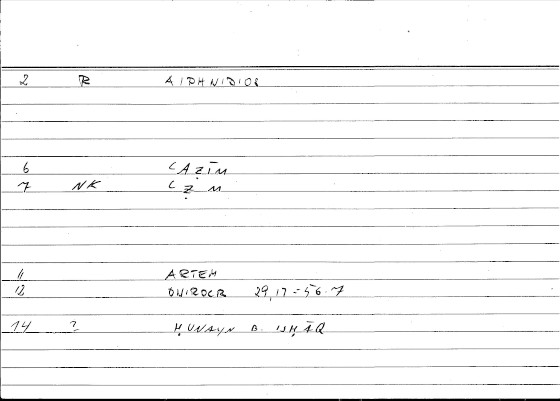 2 R AIPHNIDIOS
6 ʿAẒĪM
7 NK ʿẒM
11 ARTEM
12 ONIROCR 29,17 = 56.7
14 ? ḤUNAYN B. ISḤĀQ